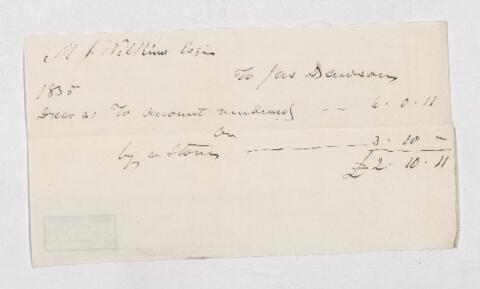 M J Wilkins Esqr
To Jas Dawson
1835
Decr 31 To account rendered -- 6 . 0 . 11
Cr
by a Stove 3 . 10 "
£2 . 10 . 11